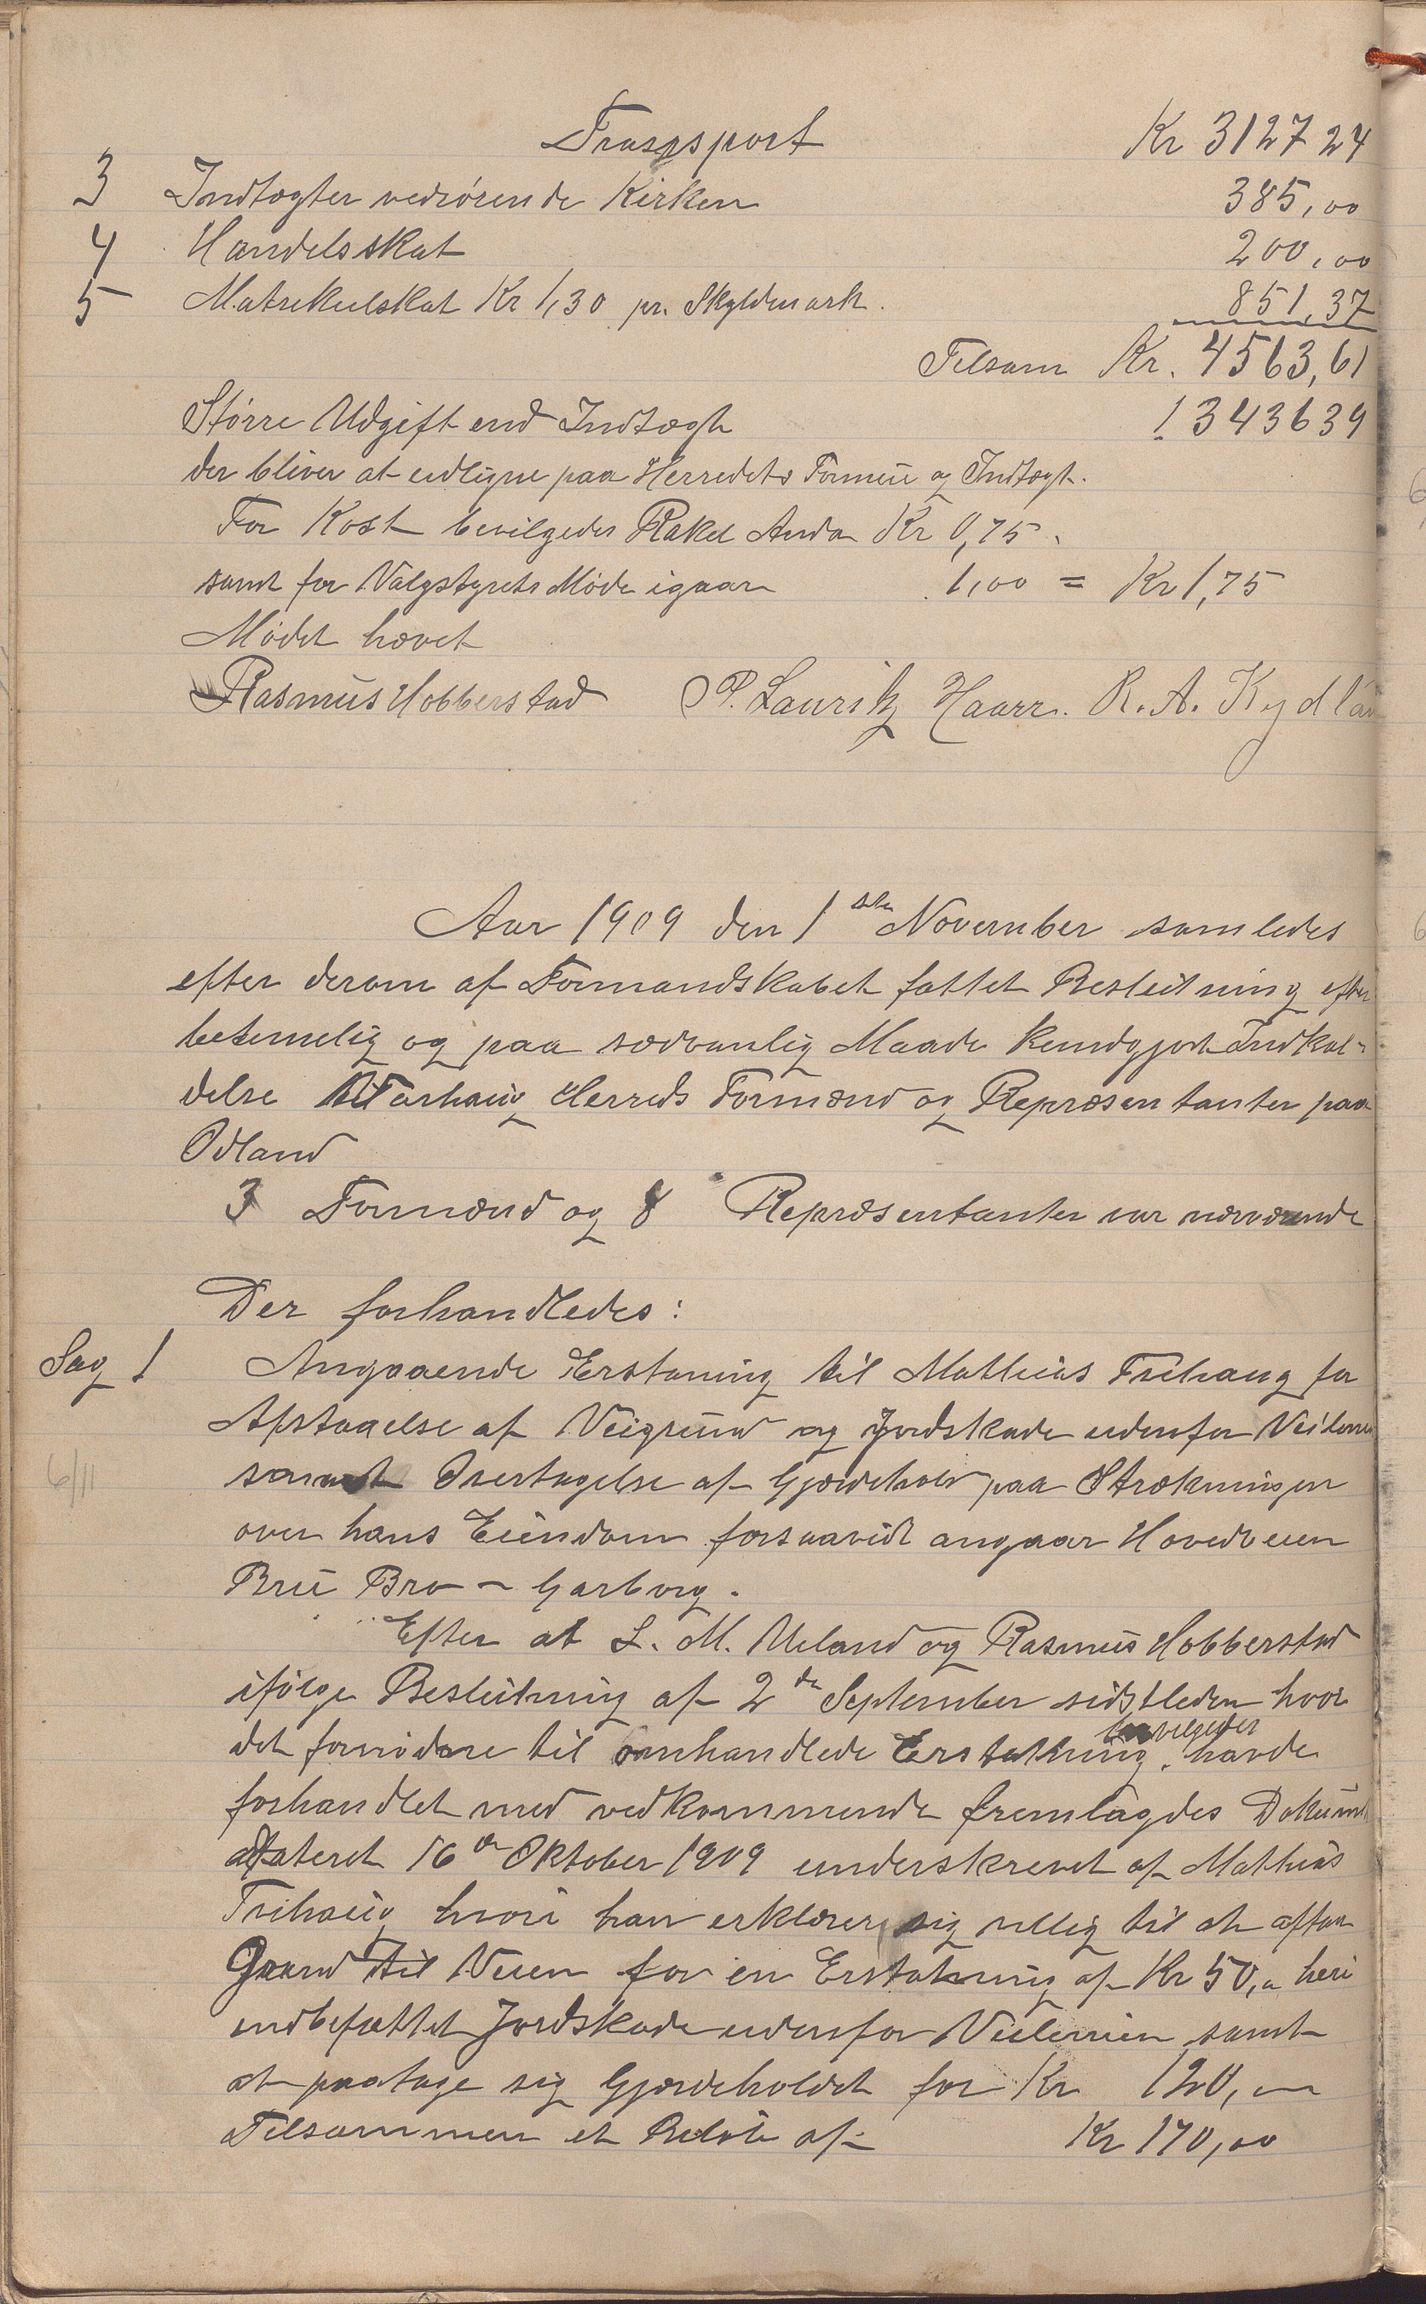 Transport Kr 3127 24
3 Indtægter vedrørende Kirken 385,00
4 Handelsskat 200,00
5 Matrikulskat Kr 1,30 pr. Skyldmark. 851,37
Tilsam Kr. 4563,61
Større Udgift end Indtægt 1343639
der bliver at udligne paa Herredets Formue og Indtægt.
For Kost bevilgedes Rakel Anda Kr 0,75.
samt for Valgstyrets Møde igaar 1,00 = Kr 1,75
Mødet hævet
Rasmus Hobberstad P. Lauritz Haarr. R. A. Kydlan
Aar 1909 den 1ste November samledes
efter derom af Formandskabet fattet Beslutning efter
betimelig og paa sædvanlig Maade kundgjort Indkal-
delse Varhaug Herreds Formænd og Repræsentanter paa
Odland
3 Formænd og 8 Repræsentanter var nærværende
Der forhandledes:
Sag 1 Angaaende Erstatning til Mathias Trihaug for
Afstaaelse af Veigrund og Jordskade udenfor Veilinien
6/11 samt Overtagelse af Gjærdehold paa Strækningen
over hans Eiendom forsaavidt angaar Hovedveien
Bru Bro - Garborg.
Efter at L. M. Ueland og Rasmus Hobberstad
ifølge Beslutning af 2den September sidstleden hvor
bevilgedes
det fornødne til omhandlede Erstatning havde
forhandlet med vedkommende fremlagdes Dokument
dateret 16de Oktober 1909 underskrevet af Mathias
Trihaug hvori han erklærer sig villig til at afstaa
Grund til Veien for en Erstatning af Kr 50,00 heri
indbefattet Jordskade udenfor Veilinien samt
at paatage sig Gjærdeholdet for Kr 120,00
Tilsammen et Beløb af Kr 170,00